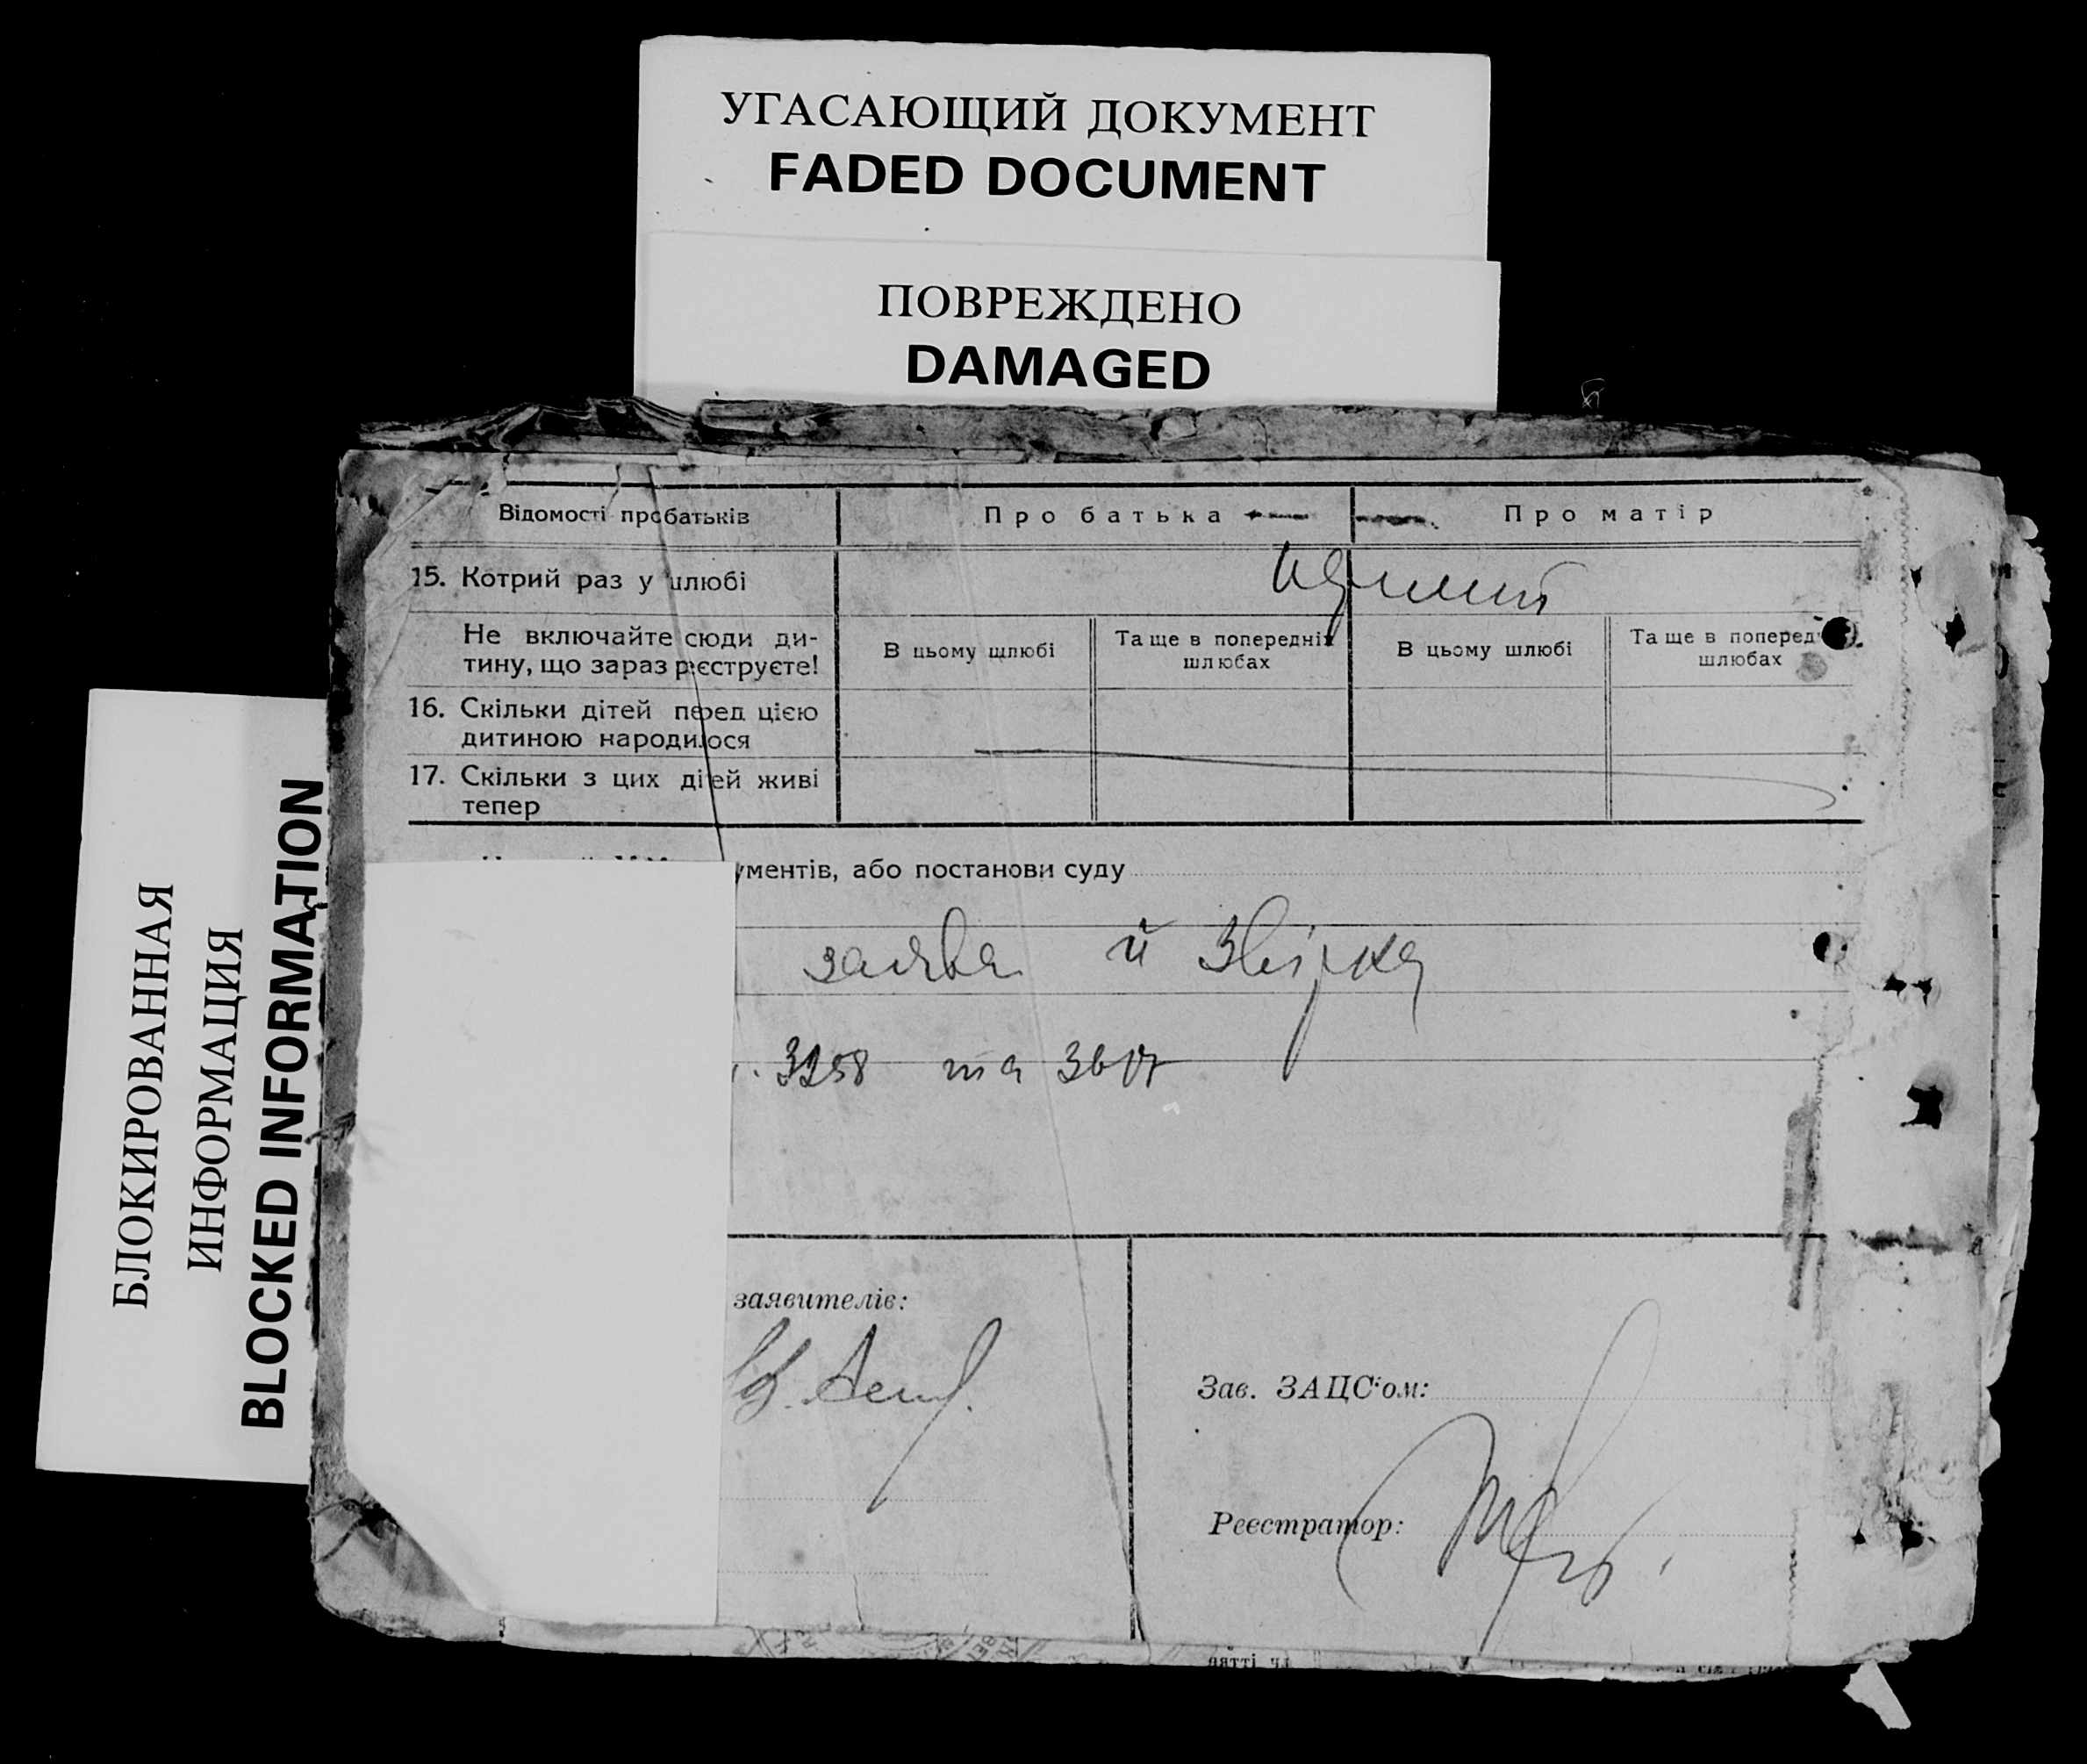 УГАСАЮЩИЙ ДОКУМЕНТ
FADED DOCUMENT
ПОВРЕЖДЕНО
DAMAGED
БЛОКИРОВАННАЯ
ИНФОРМАЦИЯ
BLOCKED INFORMATION
Відомості про батьків
Про батька
Про матір
15. Котрий раз у шлюбі
Не включайте сюди ди-
тину, що зараз реєструєте!
В цьому шлюбі
Та ще в попередніх
шлюбах
В цьому шлюбі
Та ще в поперед
шлюбах
16. Скільки дітей перед цією
дитиною народилося
17. Скільки з цих дітей живі
тепер
ументів, або постанови суду
заява й звірка
3258 та
заявителів:
Зав. ЗАЦС'ом:
Реєстратор: